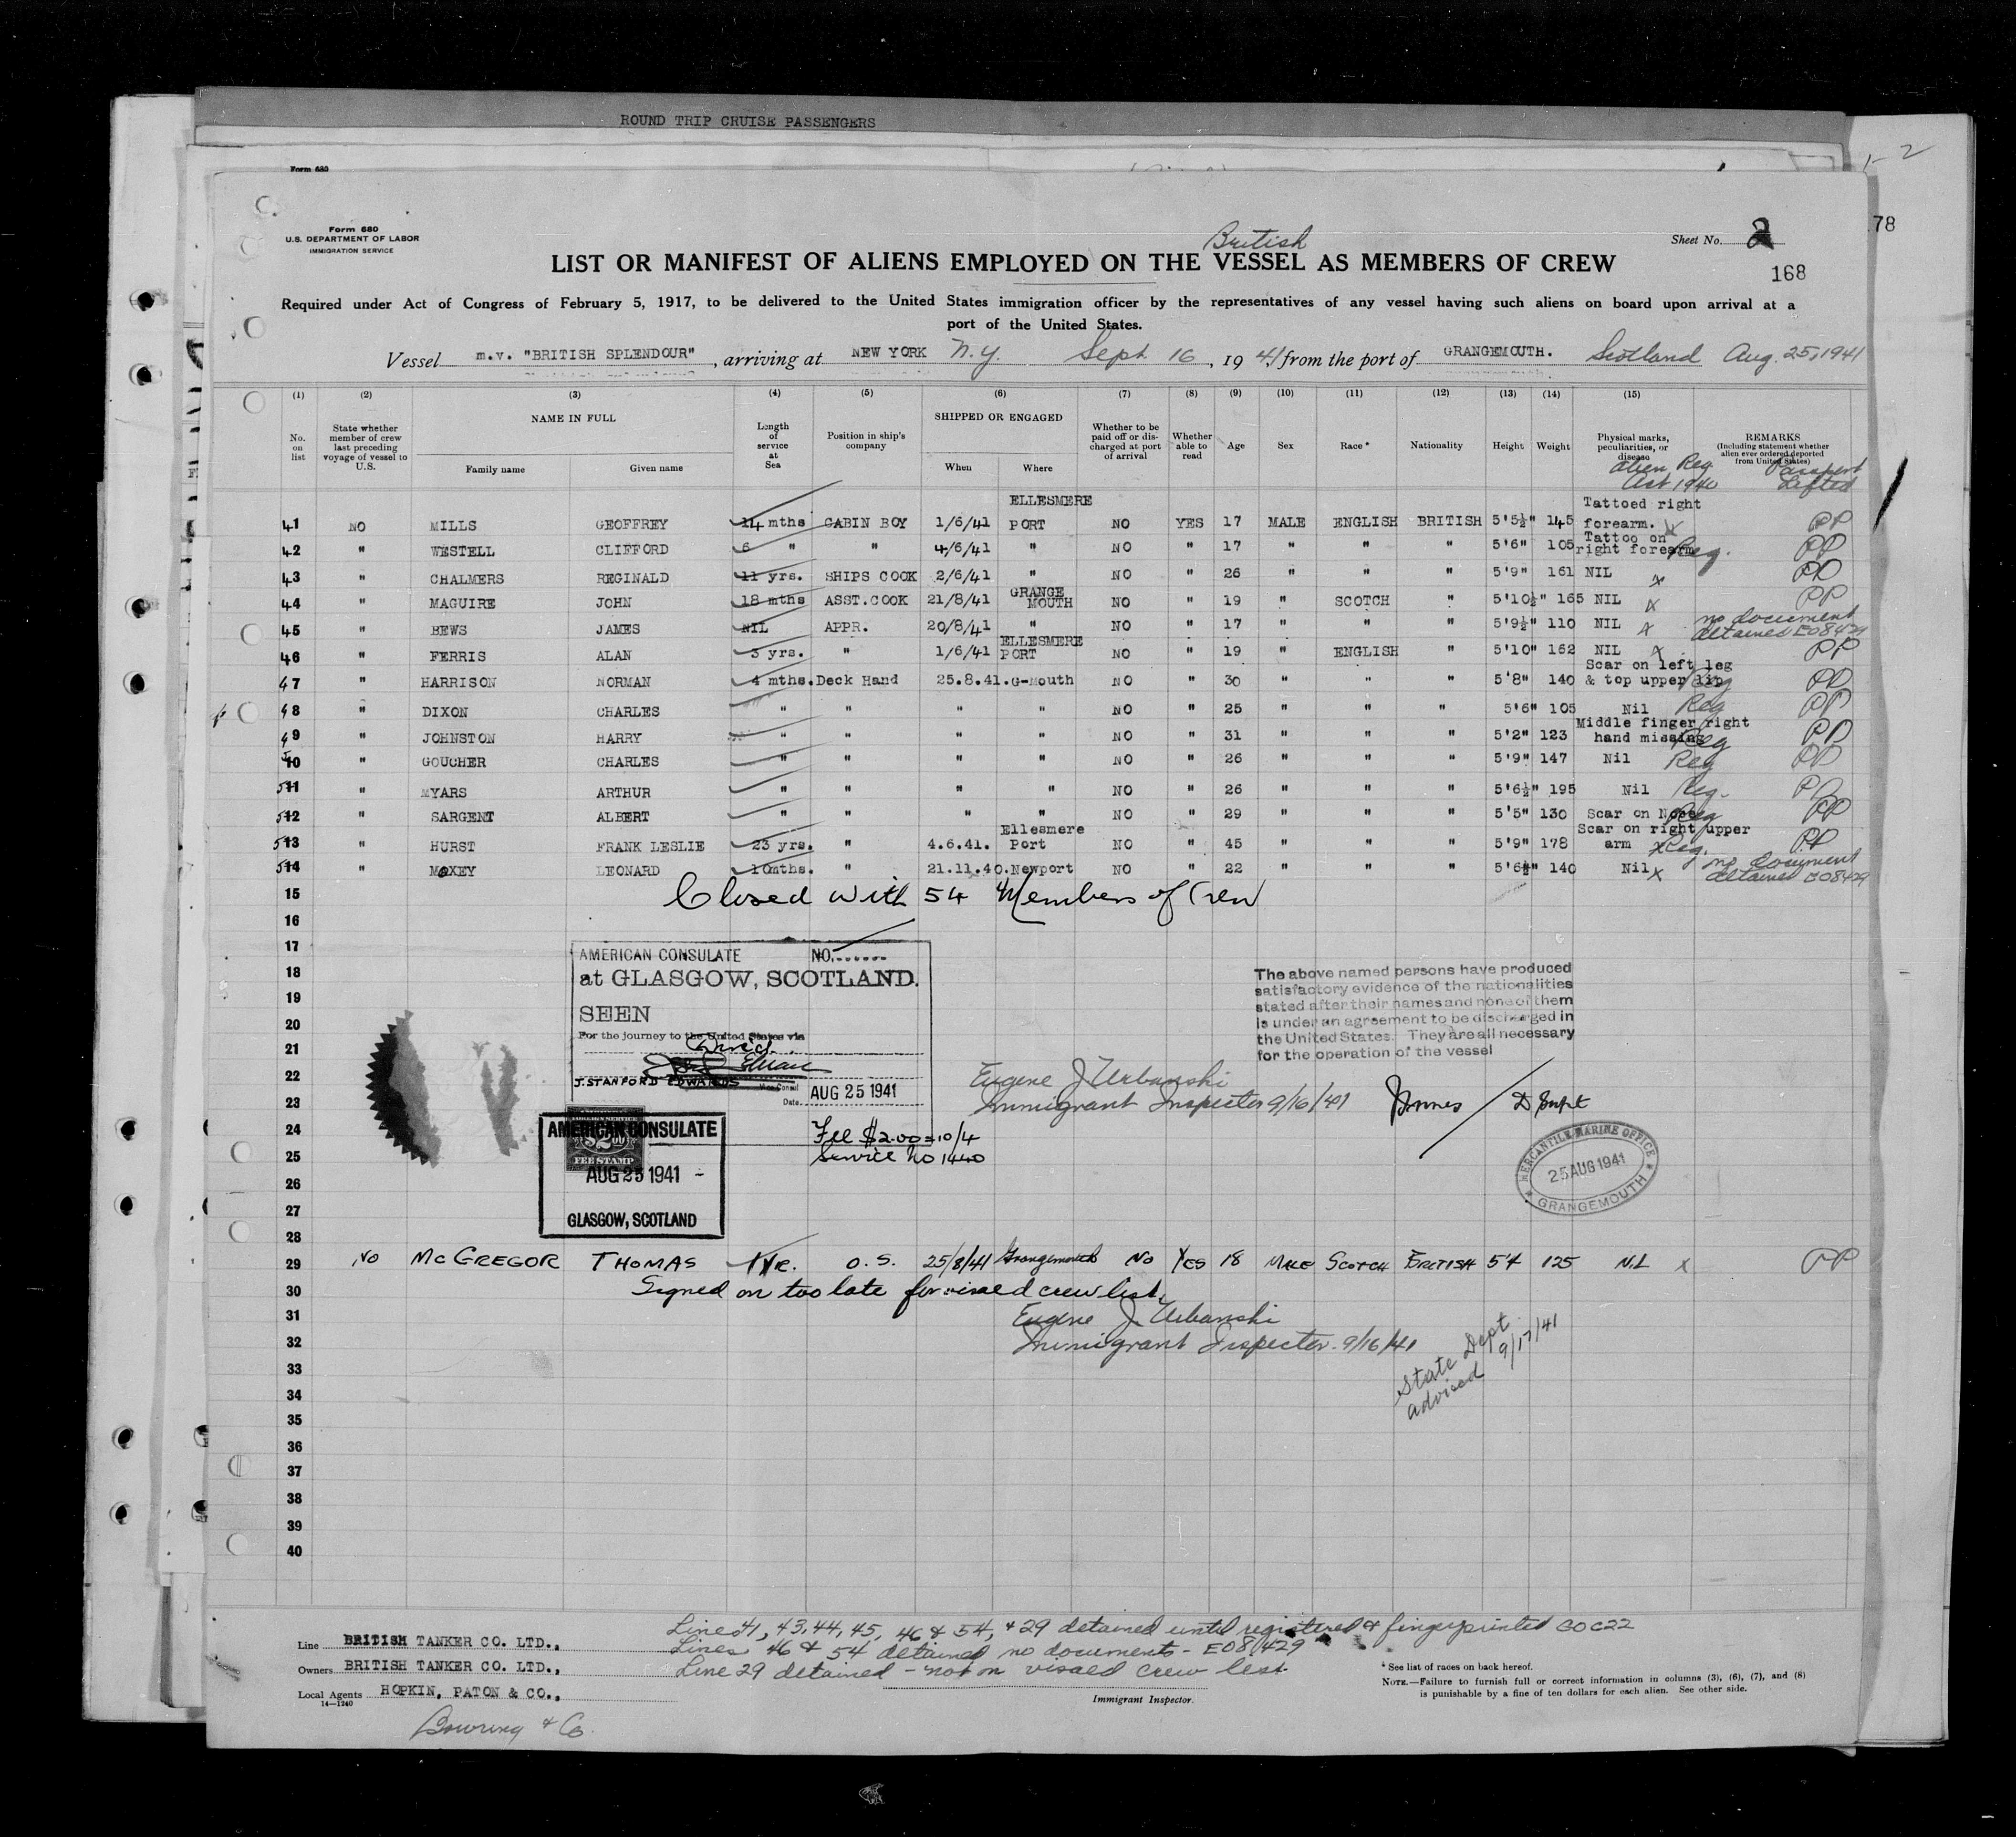 ROUND TRIP CRUISE PASSENGERS
Form 680
1-2
78
Form 680
U.S. DEPARTMENT OF LABOR
IMMIGRATION SERVICE
British
Sheet No. 2
168
LIST OR MANIFEST OF ALIENS EMPLOYED ON THE VESSEL AS MEMBERS OF CREW
Required under Act of Congress of February 5, 1917, to be delivered to the United States immigration officer by the representatives of any vessel having such aliens on board upon arrival at a
port of the United States.
Vessel m.v. "BRITISH SPLENDOUR", arriving at NEW YORK N.Y. Sept 16, 1941 from the port of GRANGEMOUTH. Scotland Aug. 25, 1941
(1) (2) (3) (4) (5) (6) (7) (8) (9) (10) (11) (12) (13) (14) (15)
No. on list
State whether member of crew last preceding voyage of vessel to U.S.
NAME IN FULL
Family name
Given name
Length of service at Sea
Position in ship's company
SHIPPED OR ENGAGED
When
Where
Whether to be paid off or discharged at port of arrival
Whether able to read
Age
Sex
Race *
Nationality
Height
Weight
Physical marks, peculiarities, or disease
REMARKS
(Including statement whether alien ever ordered deported from United States)
Alien Reg. Act 1940
Passport Lifted
41 NO MILLS GEOFFREY 14 mths CABIN BOY 1/6/41 ELLESMERE PORT NO YES 17 MALE ENGLISH BRITISH 5'5½" 145 Tattoed right forearm. x PP
42 " WESTELL CLIFFORD 6 " " 4/6/41 " NO " 17 " " " 5'6" 105 Tattoo on right forearm Reg. PP
43 " CHALMERS REGINALD 11 yrs. SHIPS COOK 2/6/41 " NO " 26 " " " 5'9" 161 NIL x PP
44 " MAGUIRE JOHN 18 mths ASST.COOK 21/8/41 GRANGE MOUTH NO " 19 " SCOTCH " 5'10½" 165 NIL x PP
45 " BEWS JAMES NIL APPR. 20/8/41 " NO " 17 " " " 5'9½" 110 NIL x no document detained EO8429
46 " FERRIS ALAN 3 yrs. " 1/6/41 ELLESMERE PORT NO " 19 " ENGLISH " 5'10" 162 NIL x PP
47 " HARRISON NORMAN 4 mths. Deck Hand 25.8.41. G-Mouth NO " 30 " " " 5'8" 140 Scar on left leg & top upper lip Reg PP
48 " DIXON CHARLES " " " " NO " 25 " " " 5'6" 105 Nil Reg PP
49 " JOHNSTON HARRY " " " " NO " 31 " " " 5'2" 123 Middle finger right hand missing Reg PP
50 " GOUCHER CHARLES " " " " NO " 26 " " " 5'9" 147 Nil Reg PP
51 " MYARS ARTHUR " " " " NO " 26 " " " 5'6½" 195 Nil Reg. PP
52 " SARGENT ALBERT " " " " NO " 29 " " " 5'5" 130 Scar on Nose Reg PP
53 " HURST FRANK LESLIE 23 yrs. " 4.6.41. Ellesmere Port NO " 45 " " " 5'9" 178 Scar on right upper arm x Reg. PP
54 " MOXEY LEONARD 10mths. " 21.11.40. Newport NO " 22 " " " 5'6½" 140 Nil x no document detained EO8429
15 Closed with 54 Members of Crew
16
17
18
19
20
21
22
23
24
25
26
27
28
AMERICAN CONSULATE NO.
at GLASGOW, SCOTLAND.
SEEN
For the journey to the United States via
J. STANFORD EDWARDS
Vice Consul
Date AUG 25 1941
Fee $2.00 = 10/4
Service No 1440
$2.00
FEE STAMP
AMERICAN CONSULATE
AUG 25 1941
GLASGOW, SCOTLAND
The above named persons have produced
satisfactory evidence of the nationalities
stated after their names and none of them
is under an agreement to be discharged in
the United States. They are all necessary
for the operation of the vessel
Eugene J Urbanski
Immigrant Inspector 9/16/41
D Supt
MERCANTILE MARINE OFFICE
25 AUG 1941
GRANGEMOUTH
29 No McGREGOR THOMAS 1 YR. O.S. 25/8/41 Grangemouth No YES 18 MALE SCOTCH BRITISH 5'4 125 NIL x PP
30 Signed on too late for visaed crew list.
31 Eugene J. Urbanski
32 Immigrant Inspector. 9/16/41
State Dept
advised 9/17/41
33
34
35
36
37
38
39
40
Line BRITISH TANKER CO. LTD.,
Owners BRITISH TANKER CO. LTD.,
Local Agents HOPKIN, PATON & CO.,
14—1240
Bowring & Co.
Lines 41, 43, 44, 45, 46 & 54, & 29 detained until registered & fingerprinted GOC22
Lines 46 & 54 detained no documents - EO8429
Line 29 detained - not on visaed crew list
Immigrant Inspector.
* See list of races on back hereof.
NOTE.—Failure to furnish full or correct information in columns (3), (6), (7), and (8)
is punishable by a fine of ten dollars for each alien. See other side.